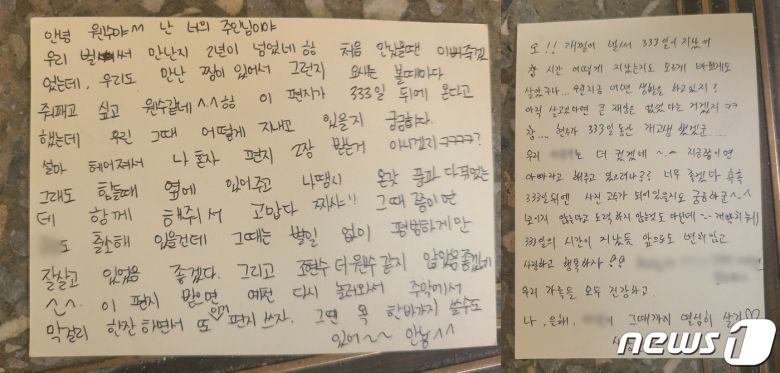 안녕 원수야^^ 난 너의 주인님이야
우리 벌써 만난지 2년이 넘었네 ㅎㅎ 처음 만났을땐 이뻐죽겠
었는데, 우리도 만난 찜이 있어서 그런지 요새는 볼때마다
줘패고 싶고 원수같네^^ㅎㅎ 이 편지가 333일 뒤에 온다고
했는데 우린 그때 어떻게 지내고 있을지 궁금하다.
설마 헤어져서 나 혼자 편지 2장 받는거 아니겠지ㅋㅋㅋㅋ?
그래도 힘들때 옆에 있어주고 나땜시 온갖 풍파 다 뒤졌는
데 함께 해줘서 고맙다 찌샤!! 그때쯤이면
도 출소해 있을건데 그때는 별일 없이 평범하게만
잘살고 있었음 좋겠다. 그리고 조현수 더 원수 같지 않았음 좋겠네
^^. 이 편지 받으면 예전 다시 놀러와서 추억에서
막걸리 한잔 하면서 또 편지 쓰자. 그땐 욕 한바가지 쓸수도
있어~~ 안뇽^^
오!! 개찔이 벌써 333일이 지났어
참 시간 어떻게 지났는지도 모르게 바쁘게도
살았구나... 웬지금 어떤 생활을 하고있지?
아직 살고있다면 큰 재앙은 없었다는 거겠지 ㅋㅋ
참... 현수가 333일동안 개고생 했겠군...
우리 는 더 컸겠네 ~.~ 지금쯤이면
아빠라고 해주고 있으려나? 너무 좋겠다 ㅎㅎ
333일뒤엔 사진 고수가 되어있을지도 궁금하군^^
333일의 시간이 지났듯 앞으로도 변치않고
사랑하고 행복하자
우리 가족들 모두 건강하고
나, 은해, 그때까지 열심히 살기♡
news1